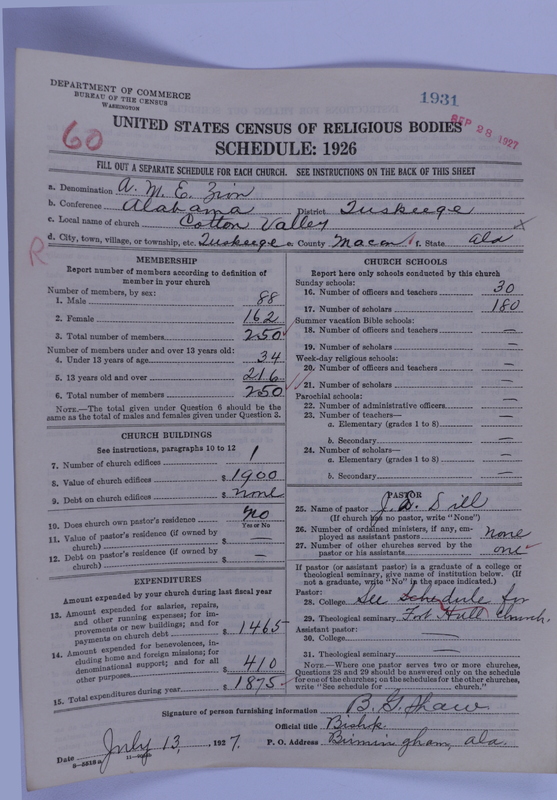 DEPARTMENT OF COMMERCE
BUREAU OF THE CENSUS
WASHINGTON
1931
SEP 28 1927
60
UNITED STATES CENSUS OF RELIGIOUS BODIES
SCHEDULE: 1926
FILL OUT A SEPARATE SCHEDULE FOR EACH CHURCH. SEE INSTRUCTIONS ON THE BACK OF THIS SHEET
a. Denomination A. M. E. Zion
b. Conference Alabama District Tuskeege
c. Local name of church Cotton Valley
d. City, town, village, or township, etc. Tuskeege e. County Macon f. State Ala
R
MEMBERSHIP
Report number of members according to definition of
member in your church
Number of members, by sex:
1. Male 88
2. Female 162
3. Total number of members 250
Number of members under and over 13 years old:
4. Under 13 years of age 34
5. 13 years old and over 216
6. Total number of members 250
NOTE.—The total given under Question 6 should be the
same as the total of males and females given under Question 3.
CHURCH BUILDINGS
See instructions, paragraphs 10 to 12
7. Number of church edifices 1
8. Value of church edifices $ 1900
9. Debt on church edifices $ none
10. Does church own pastor's residence no
Yes or No
11. Value of pastor's residence (if owned by
church) $ —
12. Debt on pastor's residence (if owned by
church) $ —
EXPENDITURES
Amount expended by your church during last fiscal year
13. Amount expended for salaries, repairs,
and other running expenses; for im-
provements or new buildings; and for
payments on church debt $ 1465
14. Amount expended for benevolences, in-
cluding home and foreign missions; for
denominational support; and for all
other purposes $ 410
15. Total expenditures during year $ 1875
CHURCH SCHOOLS
Report here only schools conducted by this church
Sunday schools:
16. Number of officers and teachers 30
17. Number of scholars 180
Summer vacation Bible schools:
18. Number of officers and teachers —
19. Number of scholars —
Week-day religious schools:
20. Number of officers and teachers —
21. Number of scholars —
Parochial schools:
22. Number of administrative officers —
23. Number of teachers—
a. Elementary (grades 1 to 8) —
b. Secondary —
24. Number of scholars—
a. Elementary (grades 1 to 8) —
b. Secondary —
PASTOR
25. Name of pastor J. D. Sill
(If church has no pastor, write "None")
26. Number of ordained ministers, if any, em-
ployed as assistant pastors none
27. Number of other churches served by the
pastor or his assistants one
If pastor (or assistant pastor) is a graduate of a college or
theological seminary, give name of institution below. (If
not a graduate, write "No" in the space indicated.)
Pastor:
28. College See Schedule for
29. Theological seminary Fort Hull Church,
Assistant pastor:
30. College —
31. Theological seminary —
NOTE.—Where one pastor serves two or more churches,
Questions 28 and 29 should be answered only on the schedule
for one of the churches; on the schedules for the other churches,
write "See schedule for church."
Signature of person furnishing information B. G. Shaw
Official title Bishop
Date July 13, 1927. P. O. Address Birmingham, Ala.